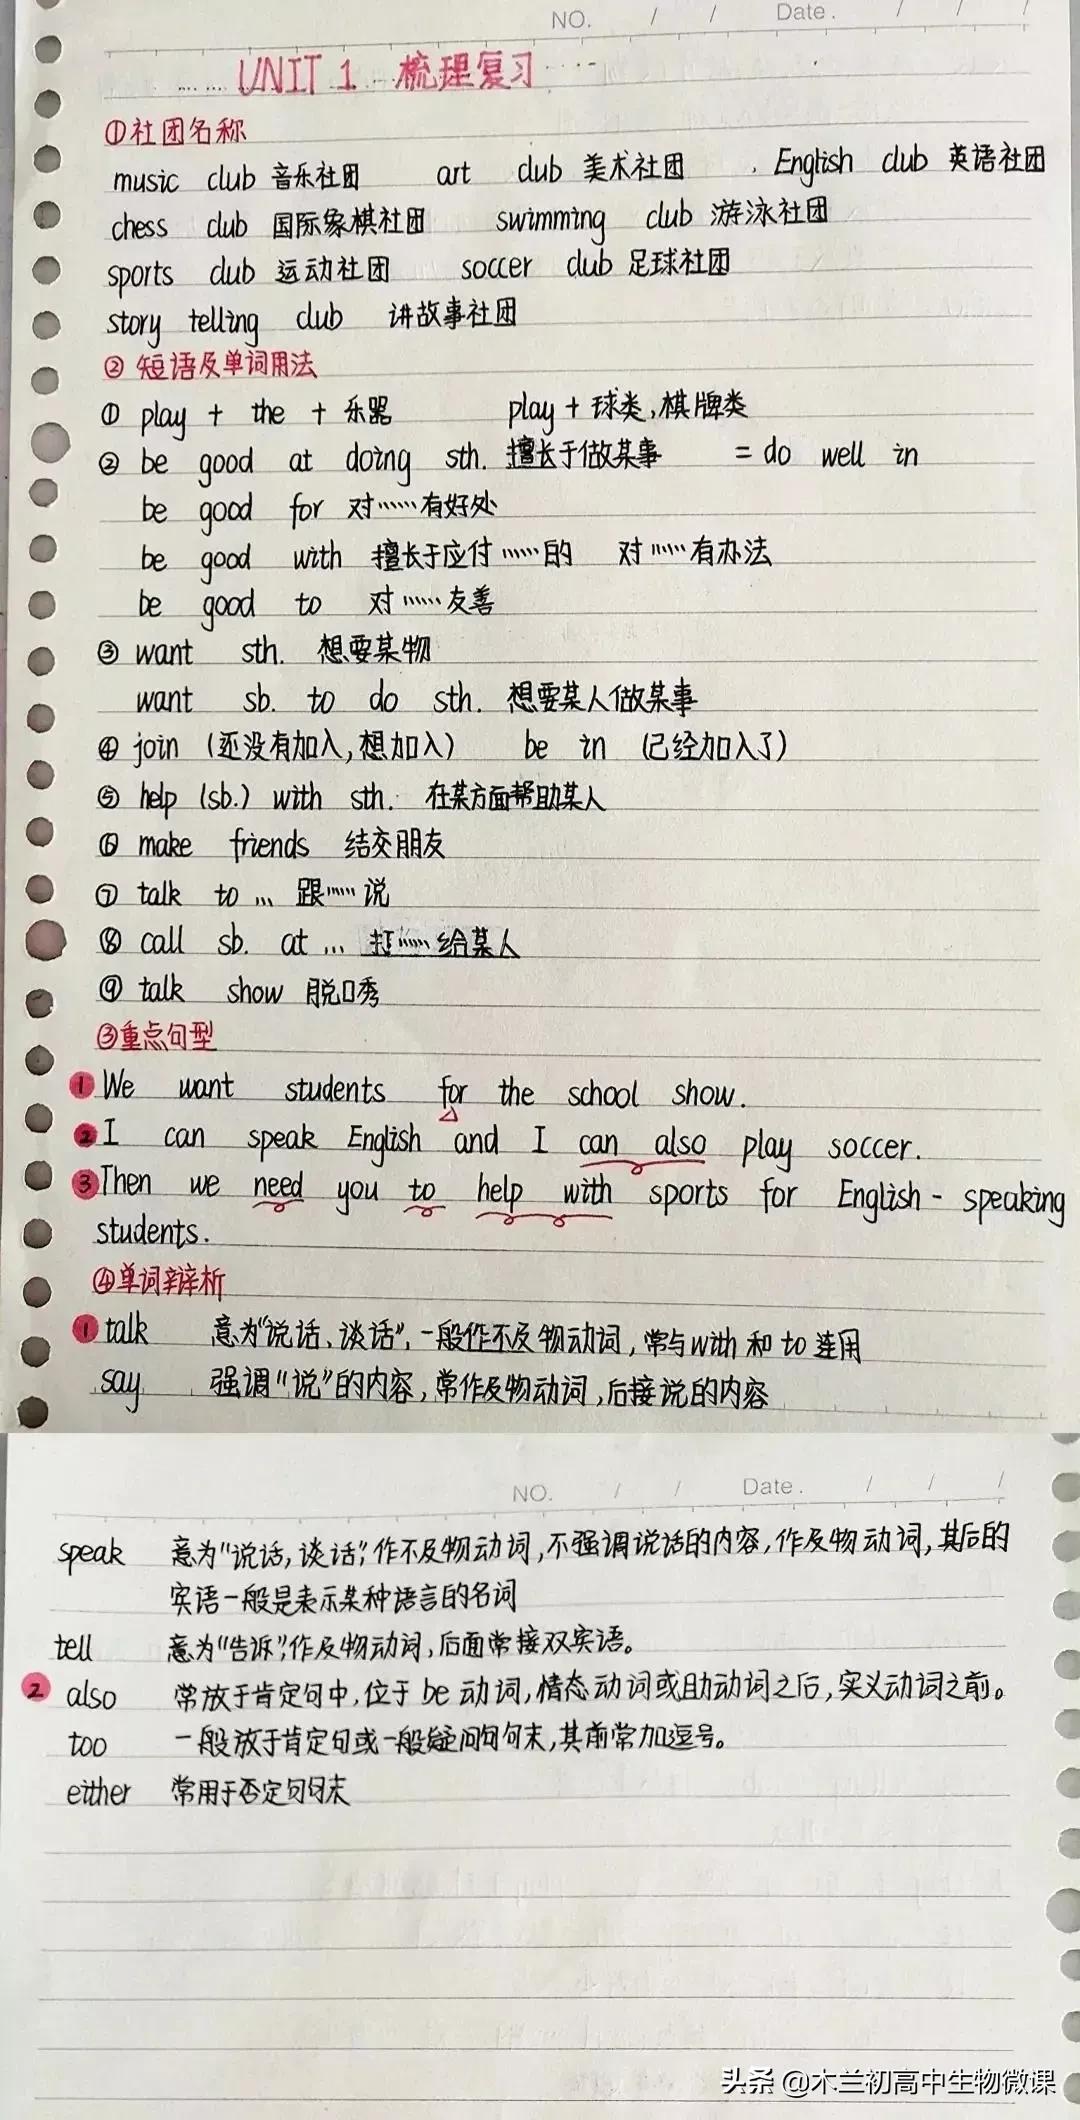 NO. / / Date. / / /
UNIT 1 梳理复习
①社团名称
music club 音乐社团 art club 美术社团 . English club 英语社团
chess club 国际象棋社团 swimming club 游泳社团
sports club 运动社团 soccer club 足球社团
story telling club 讲故事社团
② 短语及单词用法
① play + the + 乐器 play + 球类,棋牌类
② be good at doing sth. 擅长于做某事 = do well in
be good for 对……有好处
be good with 擅长于应付……的 对……有办法
be good to 对……友善
③ want sth. 想要某物
want sb. to do sth. 想要某人做某事
④ join (还没有加入,想加入) be in (已经加入了)
⑤ help (sb.) with sth. 在某方面帮助某人
⑥ make friends 结交朋友
⑦ talk to … 跟……说
⑧ call sb. at … 打……给某人
⑨ talk show 脱口秀
③重点句型
1 We want students for the school show.
2 I can speak English and I can also play soccer.
3 Then we need you to help with sports for English-speaking
students.
④单词辩析
1 talk 意为“说话、谈话”,一般作不及物动词,常与with 和 to 连用
say 强调“说”的内容,常作及物动词,后接说的内容
NO. / / Date. / / /
speak 意为“说话,谈话”,作不及物动词,不强调说话的内容,作及物动词,其后的
宾语一般是表示某种语言的名词
tell 意为“告诉”,作及物动词,后面常接双宾语。
2 also 常放于肯定句中,位于 be 动词,情态动词或助动词之后,实义动词之前。
too 一般放于肯定句或一般疑问句句末,其前常加逗号。
either 常用于否定句句末
头条 @木兰初高中生物微课